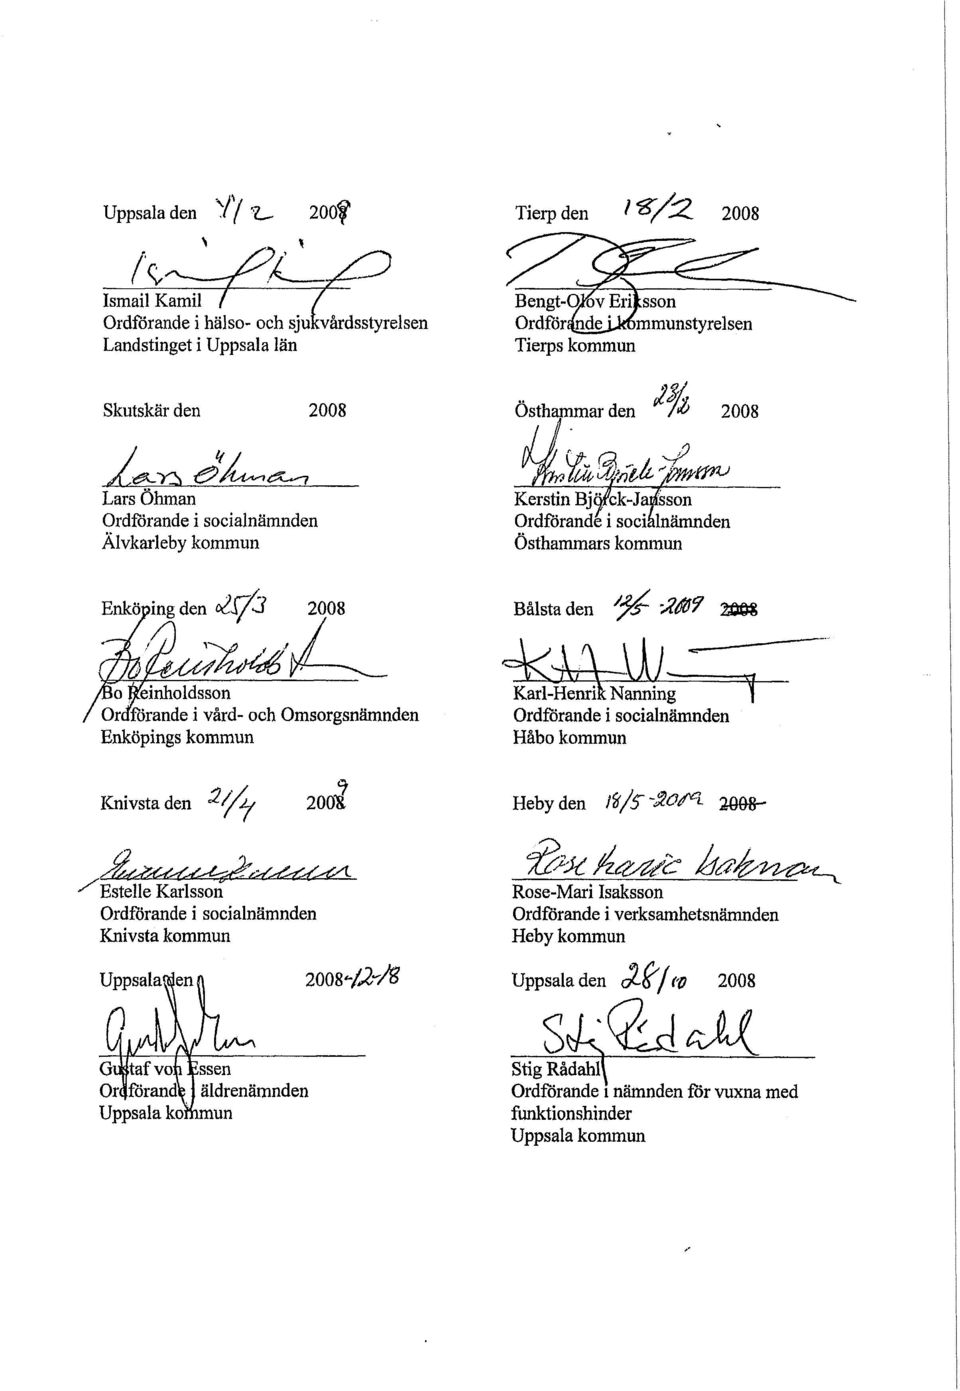 Uppsala den 4/2 2009
Ismail Kamil
Ordförande i hälso- och sjukvårdsstyrelsen
Landstinget i Uppsala län
Tierp den 18/2 2008
Bengt-Olov Eriksson
Ordförande i kommunstyrelsen
Tierps kommun
Skutskär den 2008
Lars Öhman
Lars Öhman
Ordförande i socialnämnden
Älvkarleby kommun
Östhammar den 23/2 2008
Kerstin Björck-Jansson
Kerstin Björck-Jansson
Ordförande i socialnämnden
Östhammars kommun
Enköping den 25/3 2008
Bo Reinholdsson
Bo Reinholdsson
Ordförande i vård- och Omsorgsnämnden
Enköpings kommun
Bålsta den 12/5 -2009 2008
Karl-Henrik Nanning
Ordförande i socialnämnden
Håbo kommun
Knivsta den 21/4 2009
Estelle Karlsson
Ordförande i socialnämnden
Knivsta kommun
Heby den 18/5 -2009 2008
Rose-Marie Isaksson
Rose-Mari Isaksson
Ordförande i verksamhetsnämnden
Heby kommun
Uppsala den 2008-12-18
Gustaf von Essen
Ordförande i äldrenämnden
Uppsala kommun
Uppsala den 28/10 2008
Stig Rådahl
Stig Rådahl
Ordförande i nämnden för vuxna med
funktionshinder
Uppsala kommun